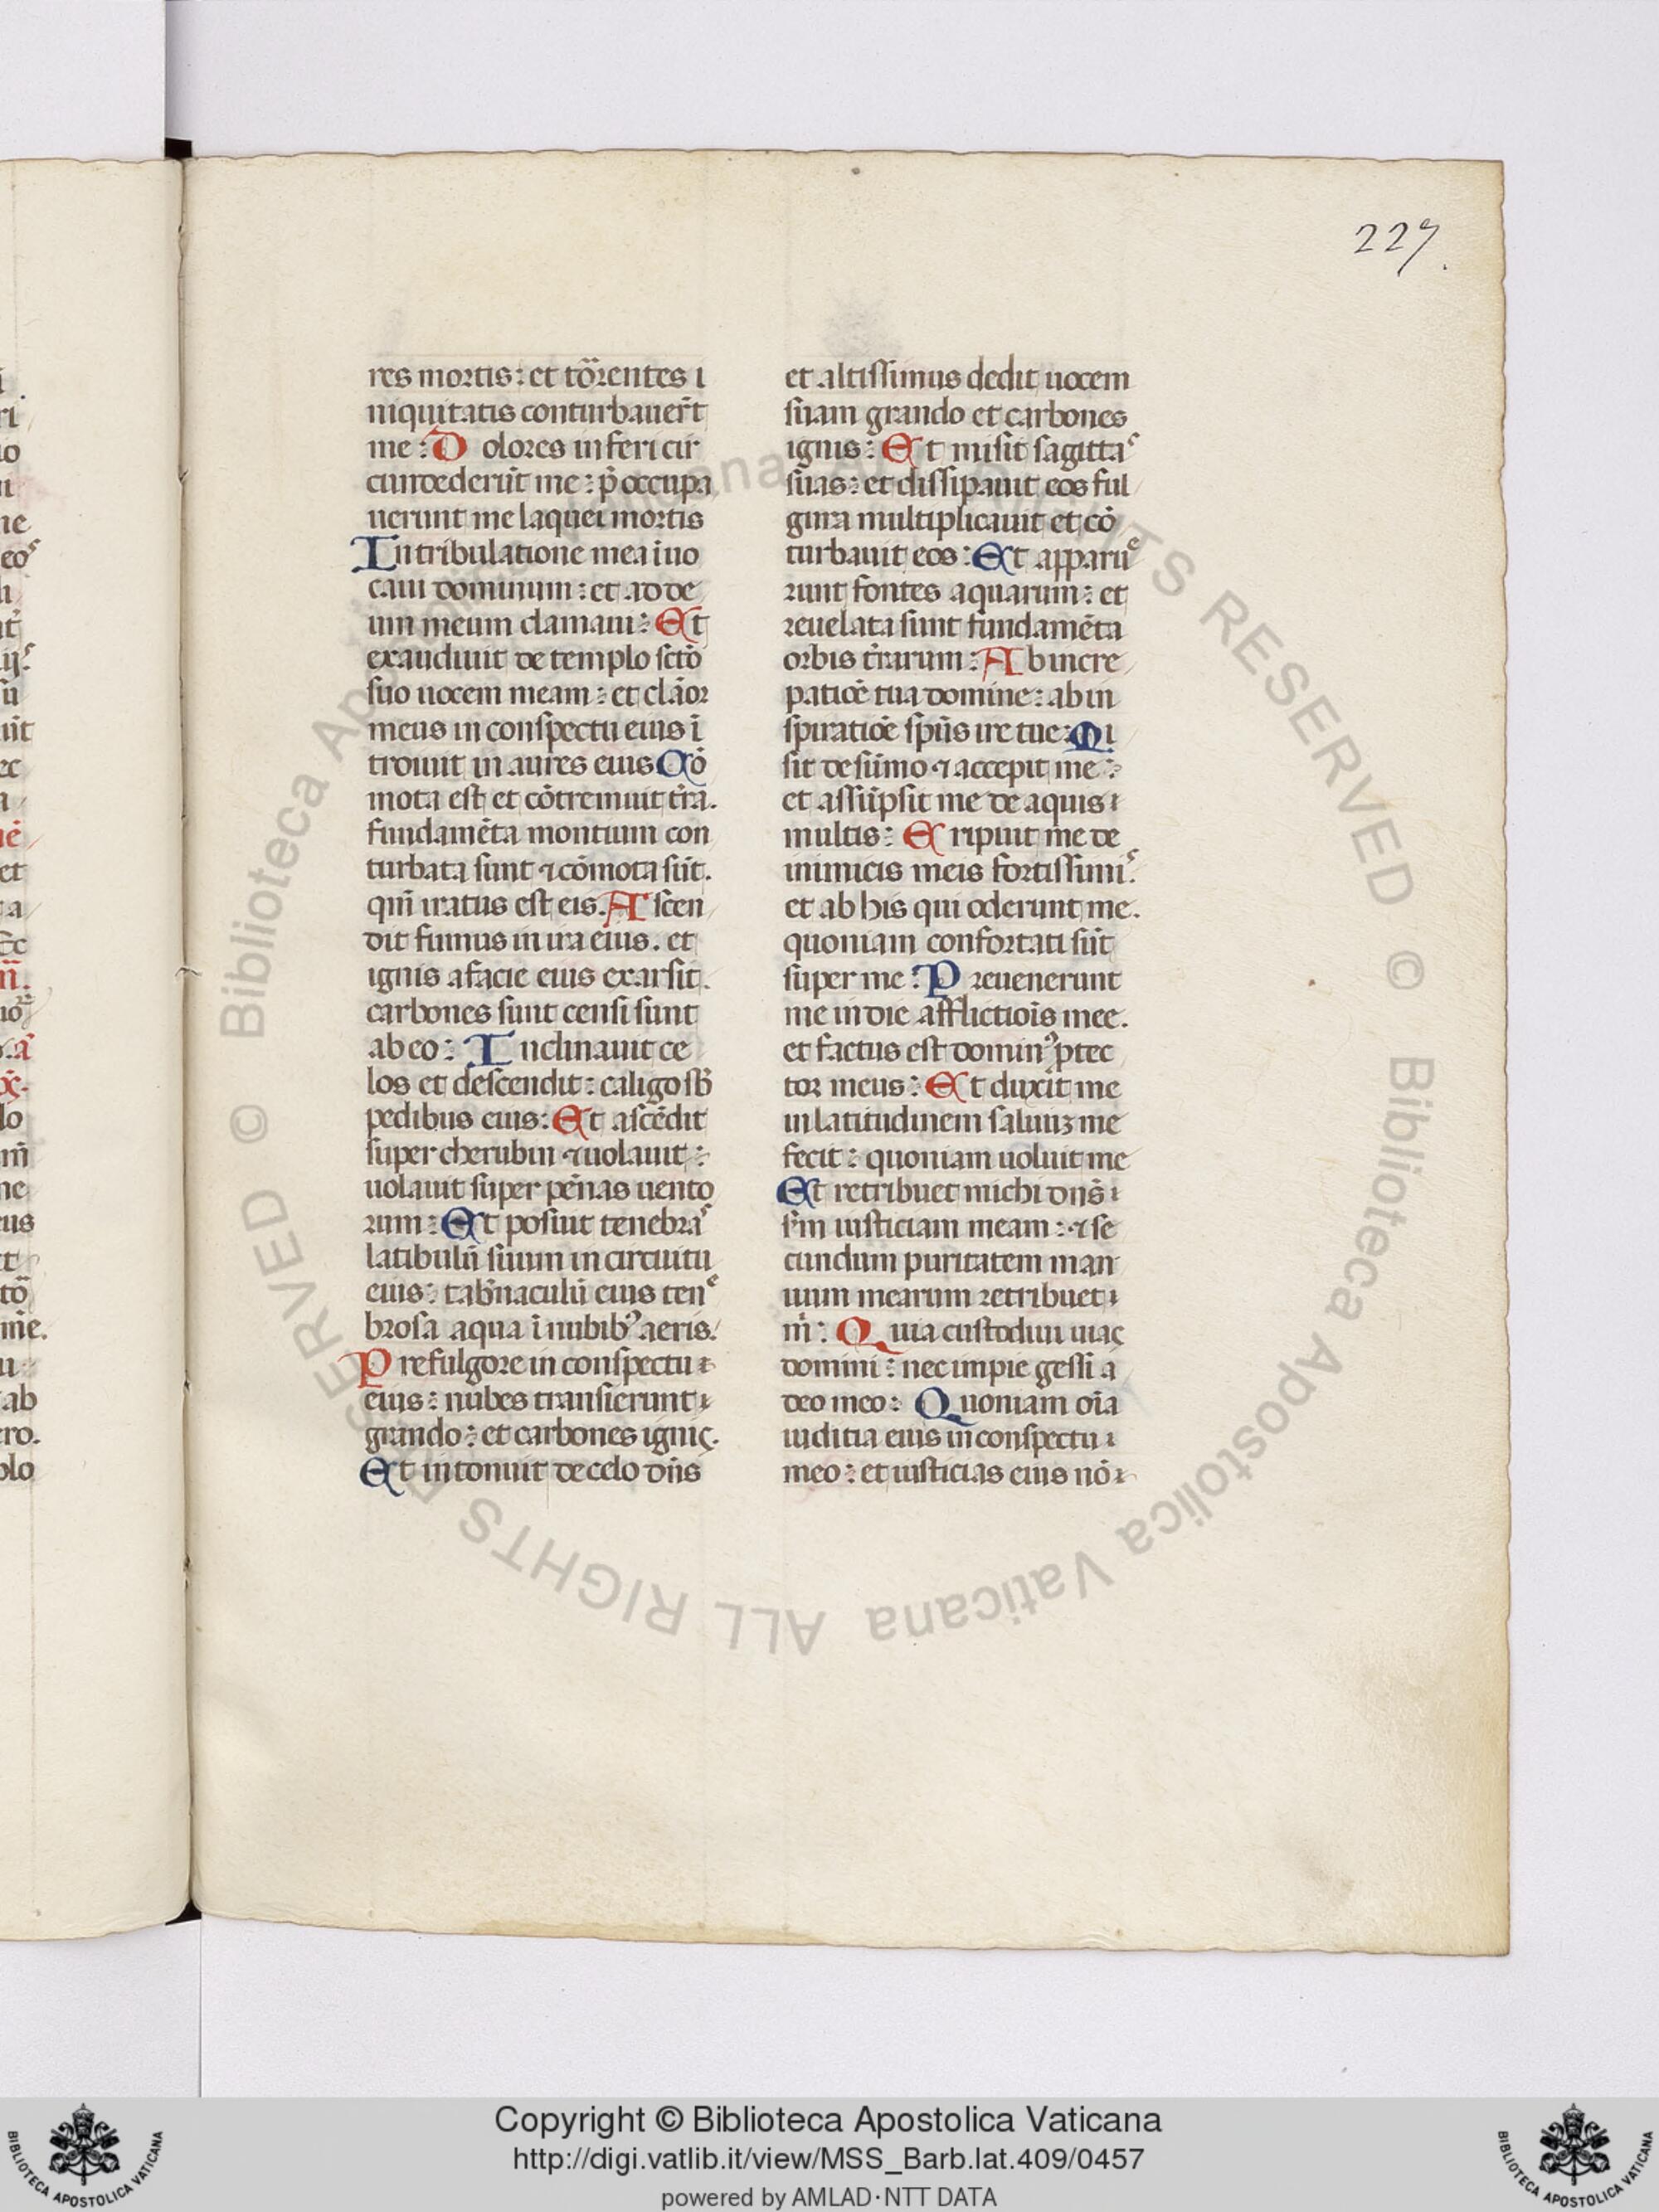 227.
res mortis: et torrentes i
niquitatis conturbauer̄t
me: Dolores inferi cir
cumdederūt me: p̄occupa
uerunt me laquei mortis
In tribulatione mea īuo
caui dominum: et ad de
um meum clamaui: Et
exaudiuit de templo sctō
suo uocem meam: et clāor
meus in conspectu eius ī
troiuit in aures eius Cō
mota est et cōtremuit t̄ra.
fundamēta montium con
turbata sunt ⁊ cōmota sūt.
qm̄ iratus est eis. Ascen
dit fumus in ira eius. et
ignis a facie eius exarsit.
carbones sunt censi sunt
ab eo: Inclinauit ce
los et descendit: caligo sb̄
pedibus eius: Et ascēdit
super cherubin ⁊ uolauit:
uolauit super pēnas uento
rum: Et posiut tenebras
latibulū suum in circuitu
eius: tab̄naculū eius tene
brosa aqua ī nubibꝰ aeris.
Pre fulgore in conspectu
eius: nubes transierunt
grando: et carbones ignis.
Et intonuit de celo dn̄s
et altissimus dedit uocem
suam grando et carbones
ignis: Et misit sagittas
suas: et dissipauit eos ful
gura multiplicauit et cō
turbauit eos: Et apparue
runt fontes aquarum: et
reuelata sunt fundamēta
orbis t̄rarum: Ab incre
patiōe tua domine: ab in
spiratiōe sp̄us ire tue: Mi
sit de sūmo ⁊ accepit me:
et assūpsit me de aquis
multis: Eripuit me de
inimicis meis fortissimis.
et ab his qui oderunt me.
quoniam confortati sūt
super me: Preuenerunt
me in die afflictiōis mee.
et factus est dominꝰ ꝓtec
tor meus: Et duxit me
in latitudinem saluuꝫ me
fecit: quoniam uoluit me
Et retribuet michi dn̄s
sm̄ iusticiam meam: ⁊ se
cundum puritatem man
uum mearum retribuet
m̄: Quia custodiui uias
domini: nec impie gessi a
deo meo: Quoniam oīa
iuditia eius in conspectu
meo: et iusticias eius nō
Copyright © Biblioteca Apostolica Vaticana
http://digi.vatlib.it/view/MSS_Barb.lat.409/0457
powered by AMLAD·NTT DATA